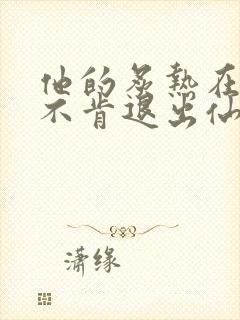 他的炙热在
不肯退出仙
潇缘